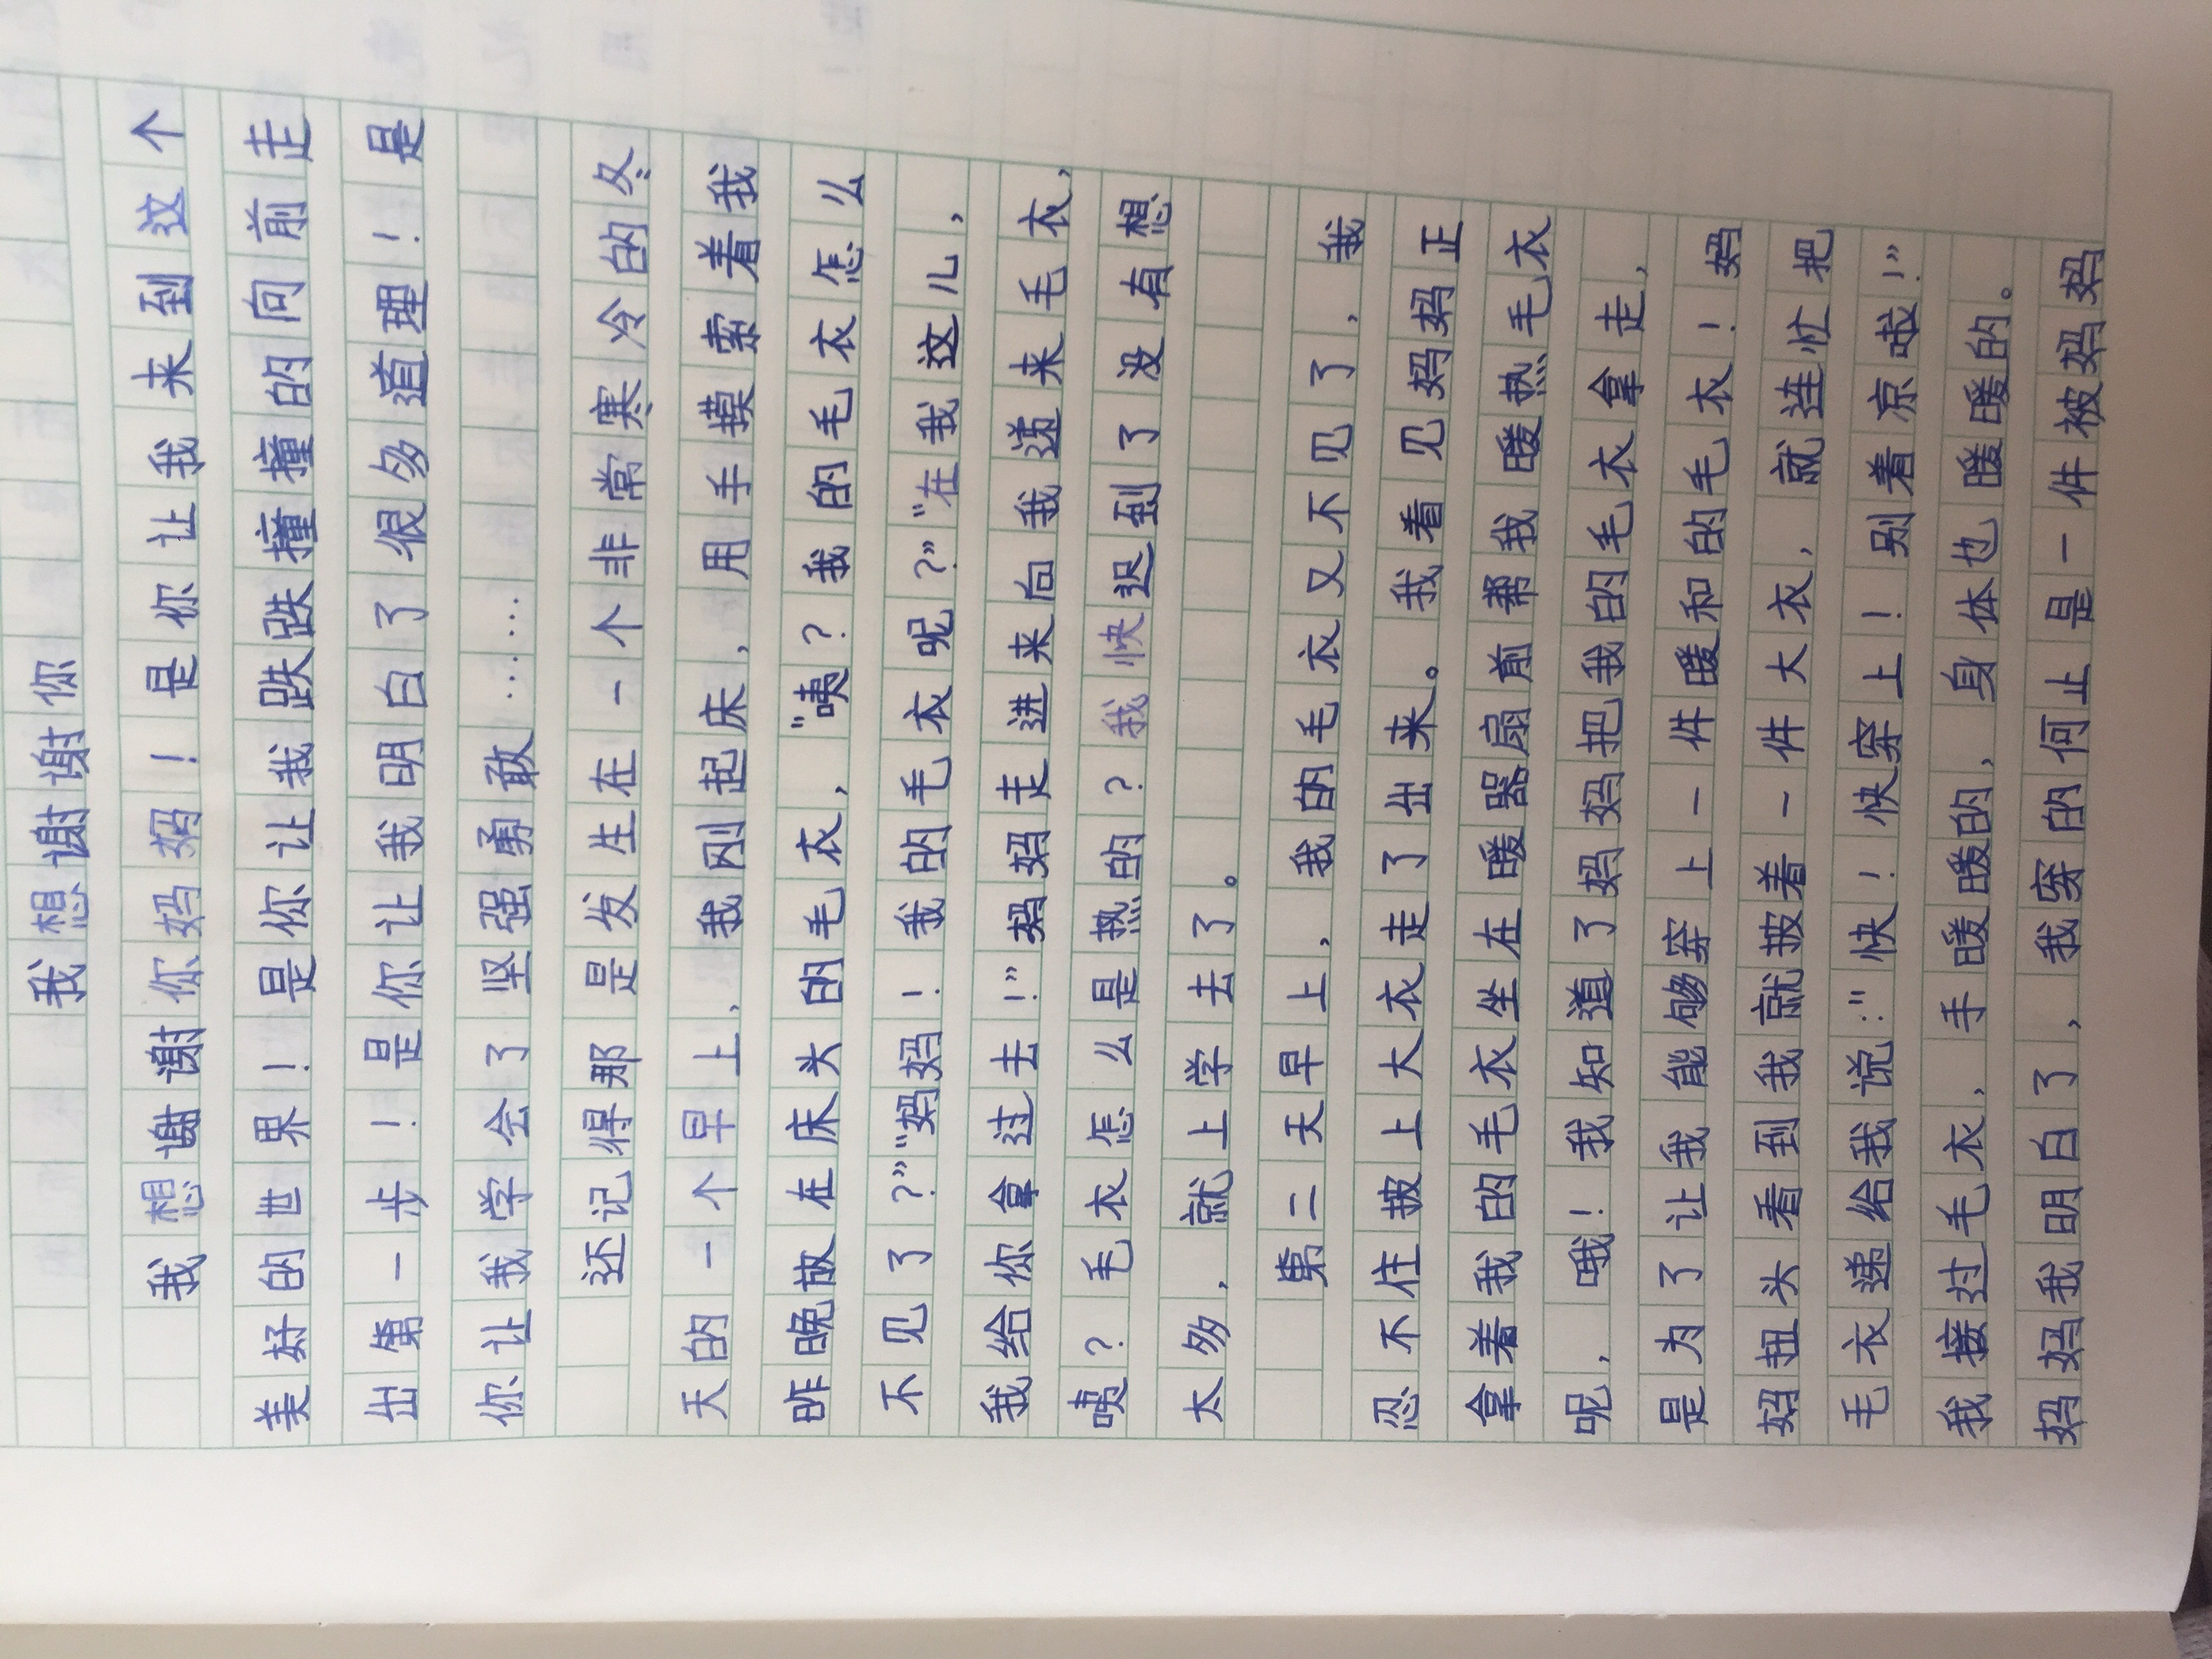 我想谢谢你
我想谢谢你妈妈！是你让我来到这个
美好的世界！是你让我跌跌撞撞的向前走
出第一步！是你让我明白了很多道理！是
你让我学会了坚强勇敢……
还记得那是发生在一个非常寒冷的冬
天的一个早上，我刚起床，用手摸索着我
昨晚放在床头的毛衣，“咦？我的毛衣怎么
不见了？”“妈妈！我的毛衣呢？”“在我这儿，
我给你拿过去！”妈妈走进来向我递来毛衣，
咦？毛衣怎么是热的？我快迟到了没有想
太多，就上学去了。
第二天早上，我的毛衣又不见了，我
忍不住披上大衣走了出来。我看见妈妈正
拿着我的毛衣坐在暖器扇前帮我暖热毛衣
呢，哦！我知道了妈妈把我的毛衣拿走，
是为了让我能够穿上一件暖和的毛衣！妈
妈扭头看到我就披着一件大衣，就连忙把
毛衣递给我说：“快！快穿上！别着凉啦！”
我接过毛衣，手暖暖的，身体也暖暖的。
妈妈我明白了，我穿的何止是一件被妈妈